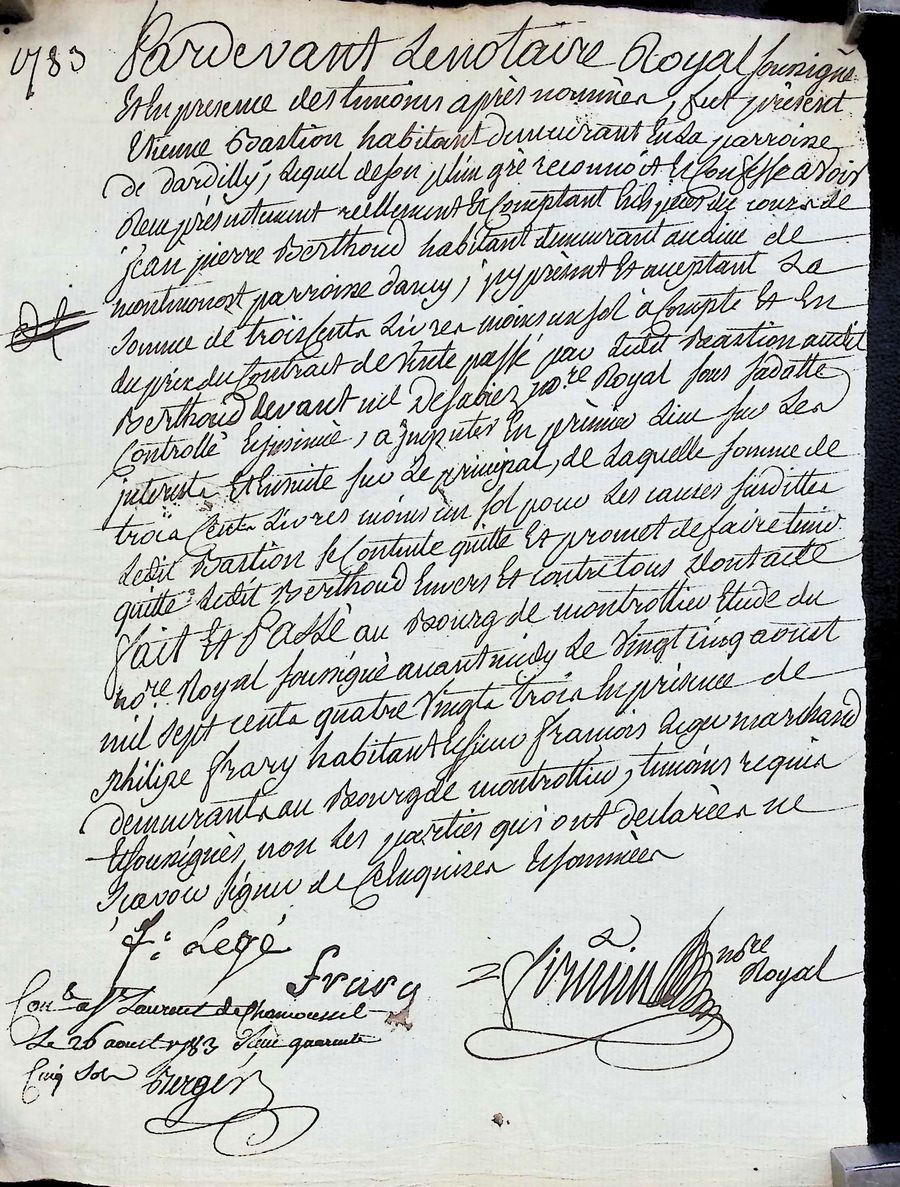 1783 Pardevant Lenotaire Royal soussigné
Et En presence des temoins après nommés, fut présent
Etienne Bastion habitant demeurant En La parroisse
de dardilly, Lequel deson plein gré reconnoit et Confesse avoir
Receu présentement réellement Et Comptant En Espèces du cours de
jean pierre Berthoud habitant demeurant au lieu de
montmonost parroisse dancy, icy présent Et acceptant La
Somme de trois Cents Livres moins un sol à Compte Et En
du prix du Contract de Vente passé par Ledit Bastion audit
Berthoud devant me Desabiez no.re Royal Sous Sadatte
Controllé Et insinué, a Imputer En prémier Lieu sur Les
interests Et Ensuite sur Le principal, de Laquelle somme de
trois Cents Livres moins un sol pour Les causes susdittes
Ledit Bastion se Contente quitte Et promet defaire tenir
quitte Ledit Berthoud Envers Et contre tous Dont acte
fait Et Passé au Bourg de montrottier Etude du
no.re Royal soussigné avant midy Le Vingt cinq aoust
mil sept cents quatre Vingts trois En présence de
philipe frary habitant Et sieur françois Legé marchand
demeurants au Bourg de montrottier, temoins requis
Et soussignés non Les parties qui ont declarées ne
Scavoir signer de Ce Enquises Et sommées
f: Legé
frary
Firmin no.re
Royal
Con.lé a St Laurent de Chamousset
Le 26 aoust 1783 Receu quarente
Cinq sols Berger